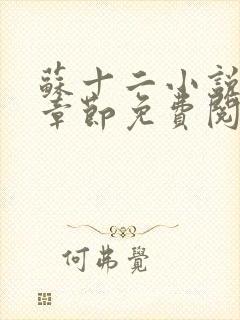 蘇十二小說
章節免費閱
何弗覺